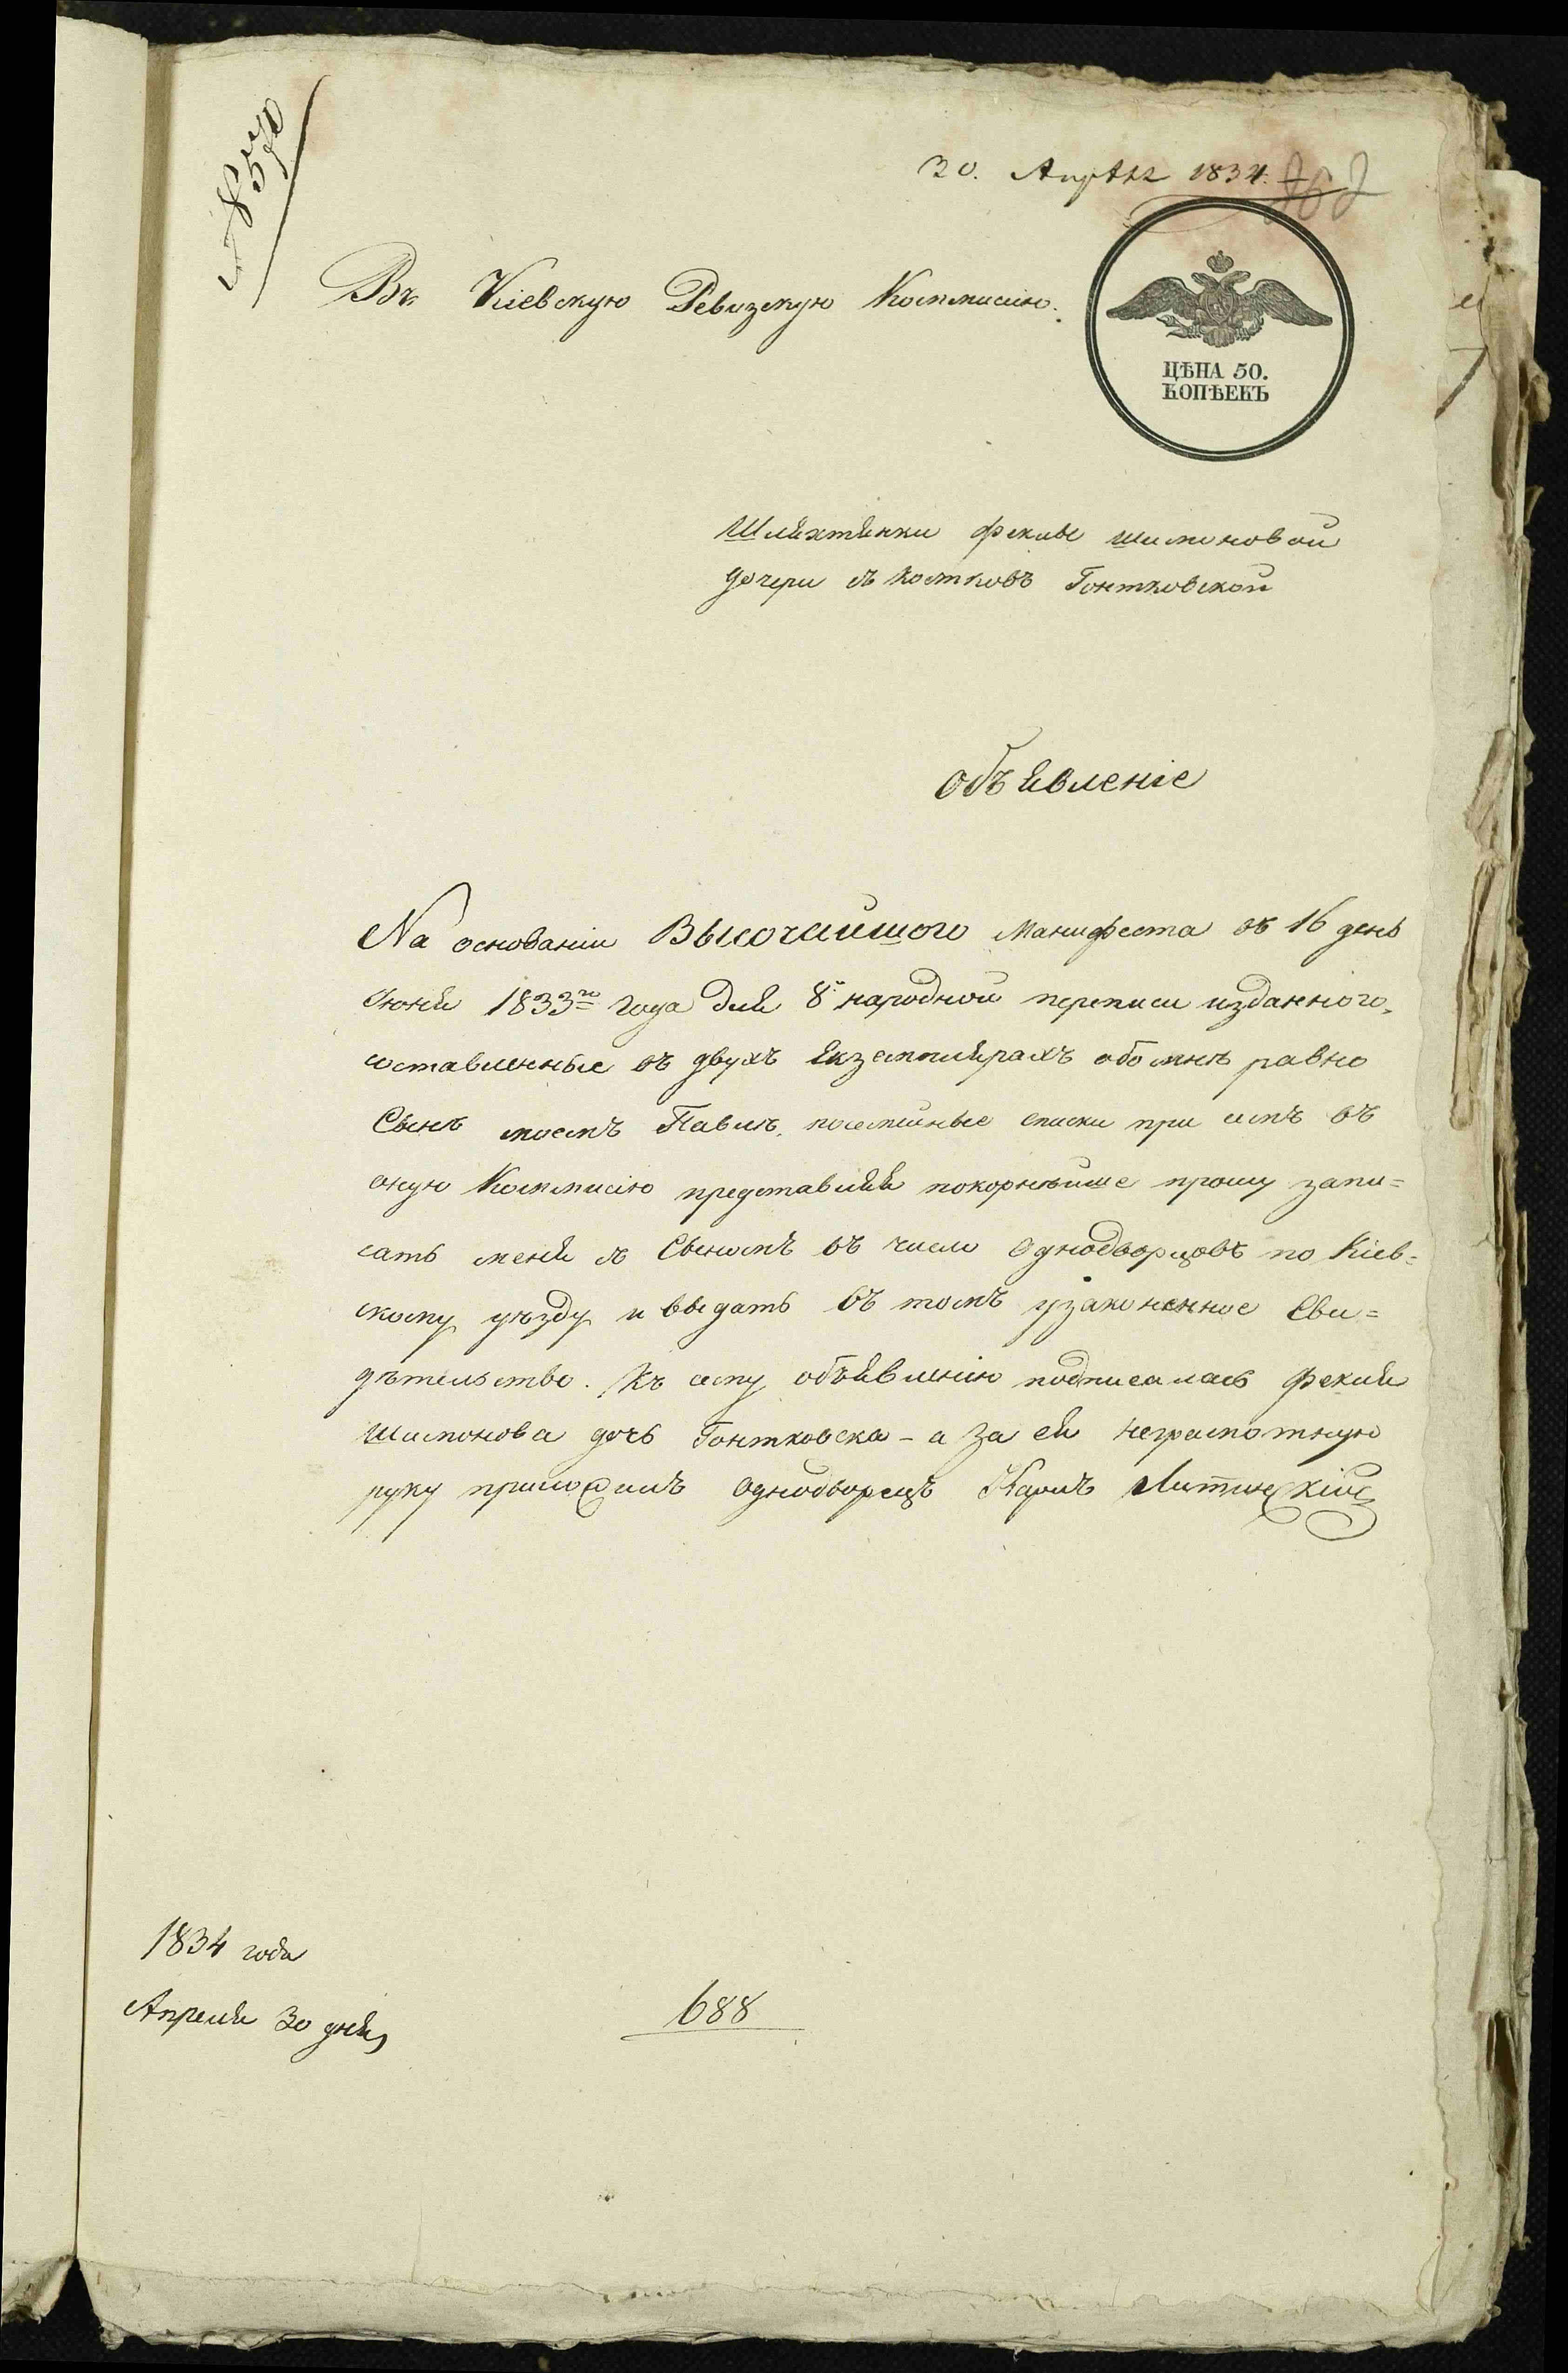 30. Апрѣля 1834.
Въ Кіевскую Ревизскую Коммисію.
ЦѢНА 50.
КОПѢЕКЪ
Шляхтянки Феклы Шимоновой
дочери съ Костковъ Гонтковской
Объявленіе
На основаніи Высочайшого Манифеста въ 16 день
Іюня 1833го года для 8й народной переписи изданного,
составленные въ двухъ екземплярахъ обо мнѣ равно
Сынѣ моемъ Павлѣ, посемейные списки при семъ въ
оную Коммисію представляя покорнѣйше прошу запи=
сать меня съ Сыномъ въ число Однодворцовъ по Кіев=
скому уѣзду и выдать въ томъ узаконенное Сви=
дѣтельство. Къ сему объявленію подписалась Фекля
Шимонова дочь Гонтковска - а за ея неграмотную
руку приложилъ Однодворецъ Карлъ Литинскій
1834 года
Апреля 30 дня
688